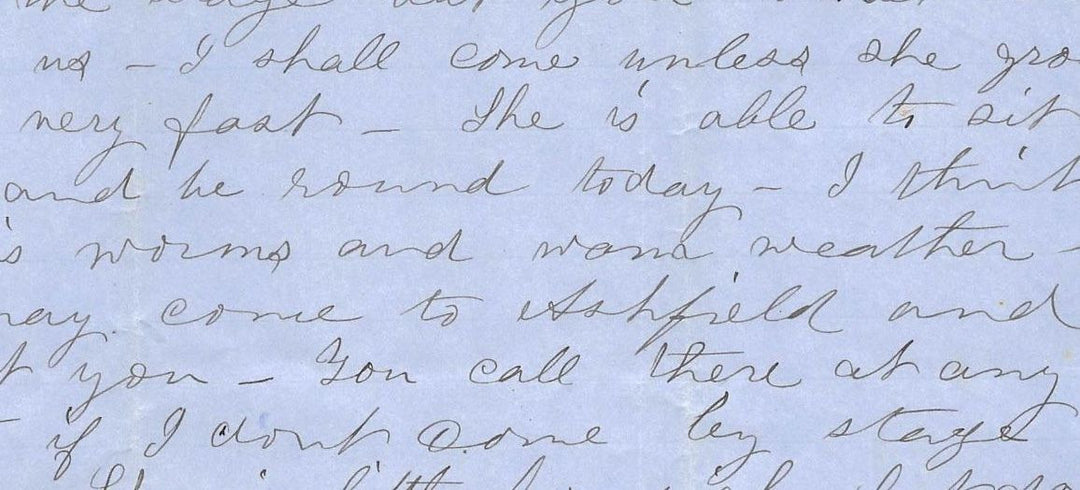 us - I shall come unless she gro
very fast - She is able to sit
and be round today - I think
is worms and warm weather -
may come to Ashfield and
t you - You call there at any
if I dont come by stage